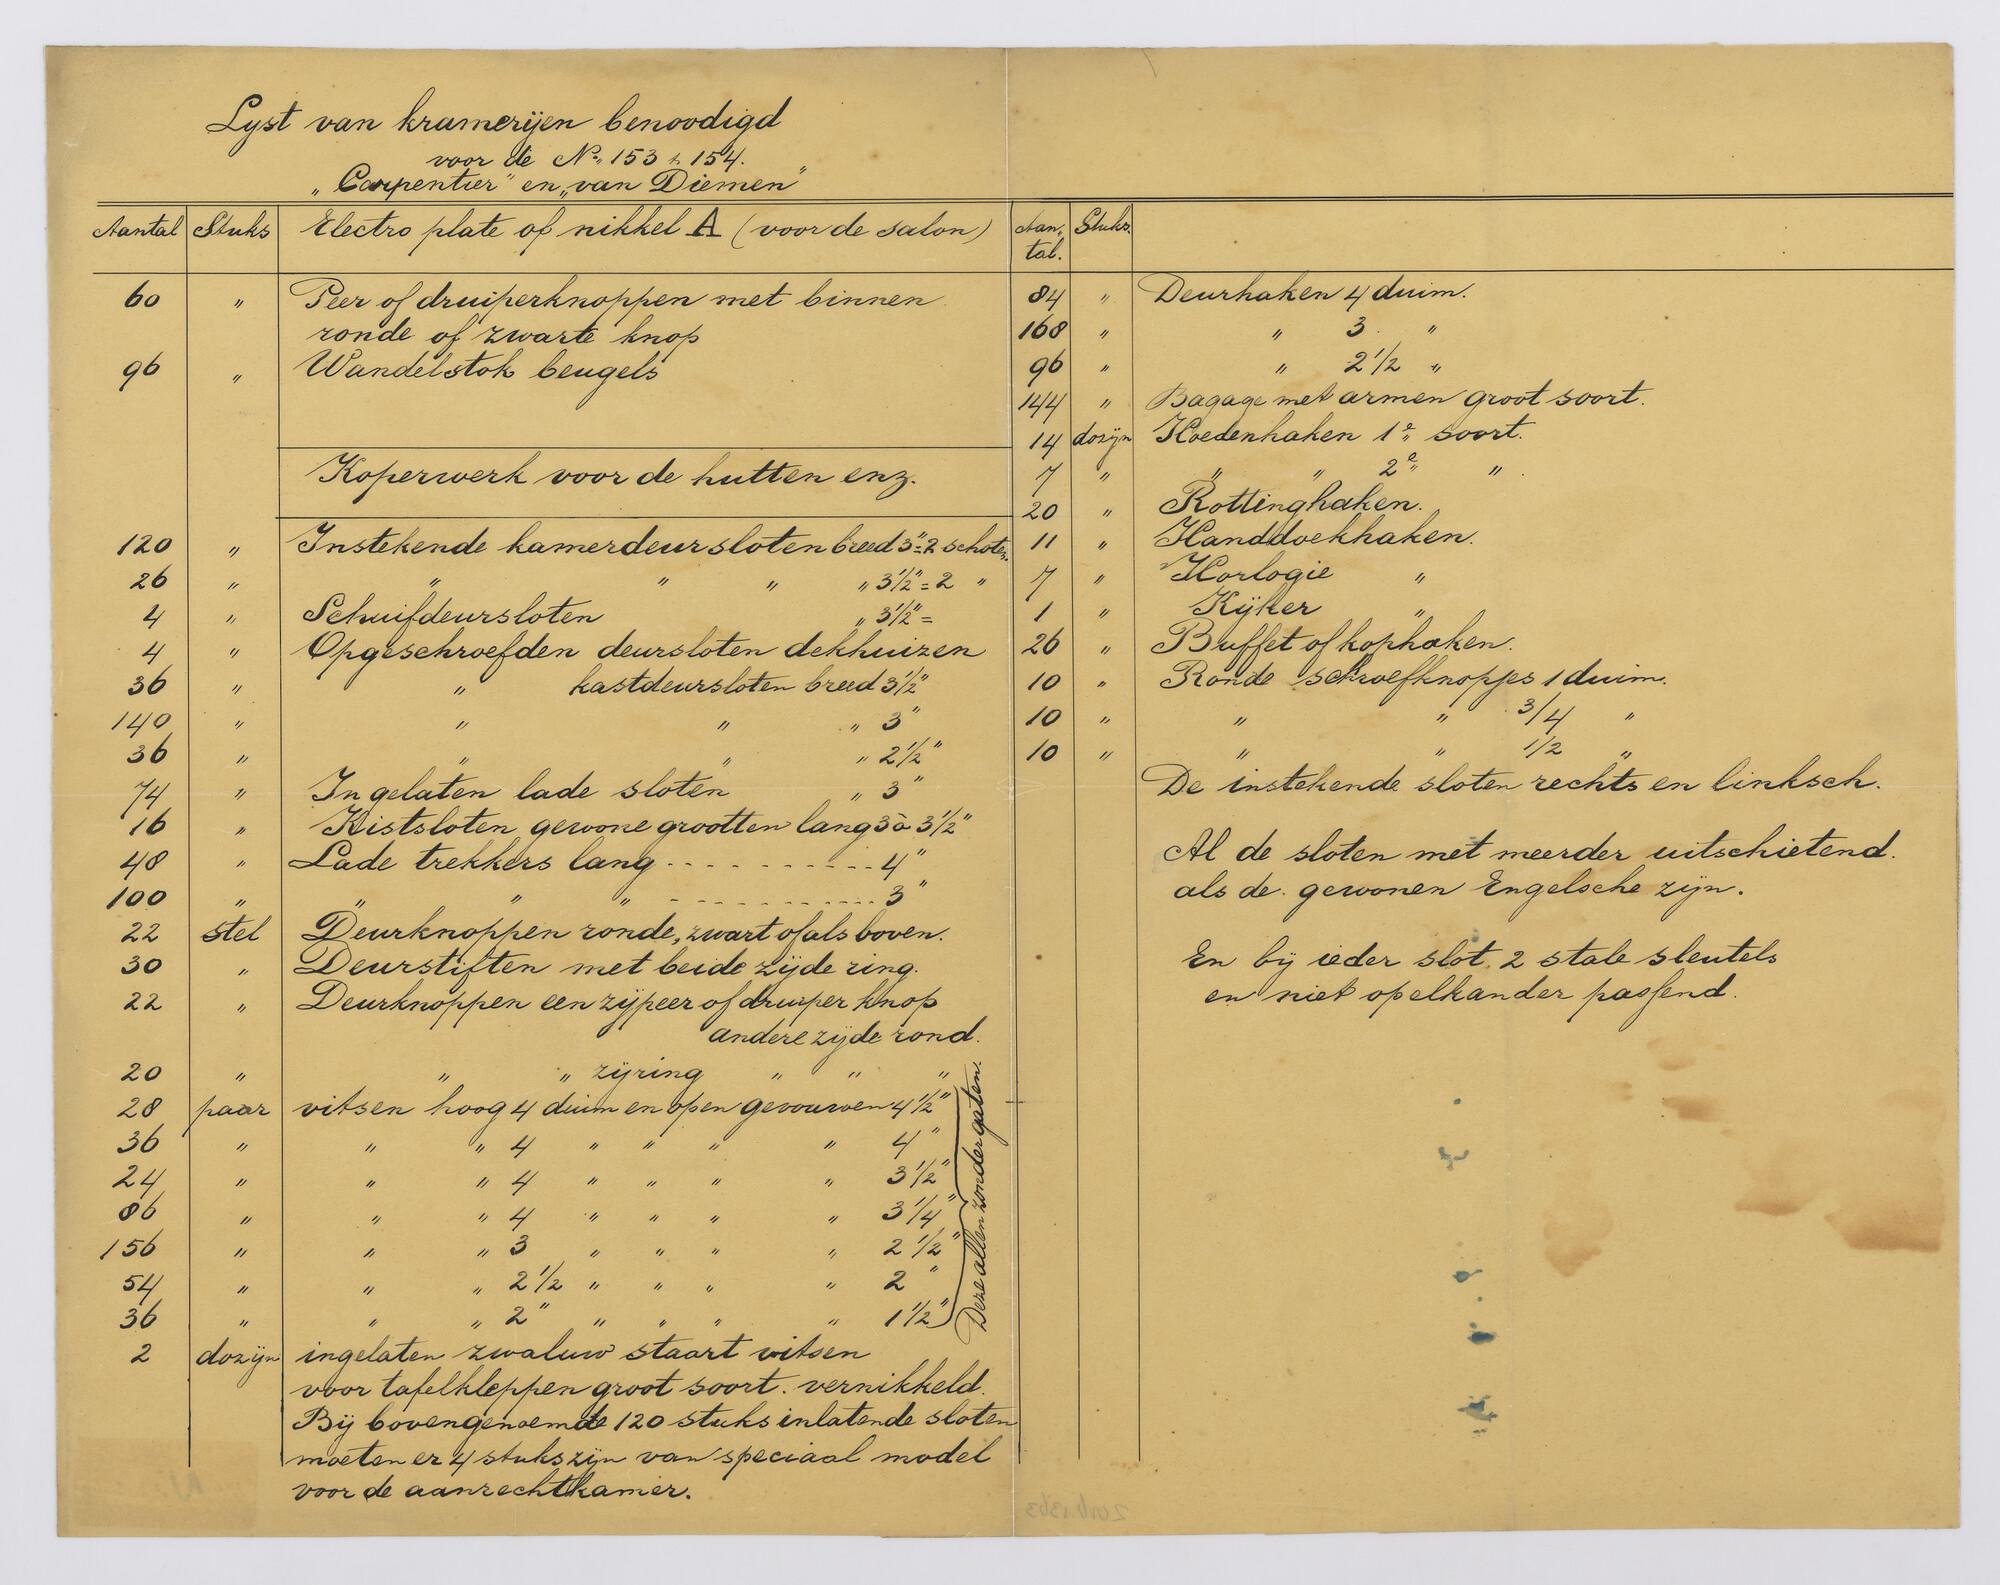 Lyst van kramerijen benoodigd
voor de No. 153 & 154.
„Carpentier" en „van Diemen"
Aantal Stuks Electro plate of nikkel A (voor de salon)
60 " Peer of druiperknoppen met binnen
ronde of zwarte knop
96 " Wandelstok beugels
Koperwerk voor de hutten enz.
120 " Instekende kamerdeursloten breed 3" = 2 schoten
26 " " " " " 3 1/2" = 2 "
4 " Schuifdeursloten " 3 1/2" =
4 " Opgeschroefden deursloten dekhuizen
36 " " kastdeursloten breed 3 1/2"
140 " " " " 3"
36 " " " " 2 1/2"
74 " Ingelaten lade sloten " 3"
16 " Kistsloten gewone grootten lang 3 à 3 1/2"
48 " Lade trekkers lang - - - - - - - - - - 4"
100 " " " " - - - - - - - - - - 3"
22 stel Deurknoppen ronde, zwart of als boven.
30 " Deurstiften met beide zijde ring.
22 " Deurknoppen een zij peer of druiper knop
andere zijde rond.
20 " " " zij ring " " "
28 paar vitsen hoog 4 duim en open gevouwen 4 1/2"
36 " " " 4 " " " " 4"
24 " " " 4 " " " " 3 1/2"
86 " " " 4 " " " " 3 1/4"
156 " " " 3 " " " " 2 1/2"
54 " " " 2 1/2 " " " " 2"
36 " " " 2" " " " " 1 1/2"
Deze allen zonder gaten.
2 dozijn ingelaten zwaluw staart vitsen
voor tafelkleppen groot soort. vernikkeld.
Bij bovengenoemde 120 stuks inlatende sloten
moeten er 4 stuks zijn van speciaal model
voor de aanrechtkamer.
Aan- Stuks.
tal.
84 " Deurhaken 4 duim.
168 " " 3 "
96 " " 2 1/2 "
144 " Bagage met armen groot soort.
14 dozijn Hoedenhaken 1e soort.
7 " " " 2e " .
20 " Rottinghaken.
11 " Handdoekhaken.
7 " Horlogie "
1 " Kijker "
26 " Buffet of kophaken.
10 " Ronde schroefknopjes 1 duim.
10 " " " 3/4 "
10 " " " 1/2 "
De instekende sloten rechts en linksch.
Al de sloten met meerder uitschietend.
als de gewonen Engelsche zijn.
En bij ieder slot 2 stale sleutels
en niet op elkander passend.